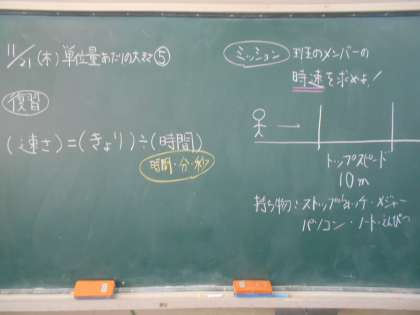 11/21 (木) 単位量あたりの大きさ⑤
復習
(速さ)=(きょり)÷(時間)
時間・分・秒
ミッション 班のメンバーの
時速を求めよ!
トップスピード
10m
持ち物:ストップウォッチ・メジャー
パソコン・ノート・えんぴつ